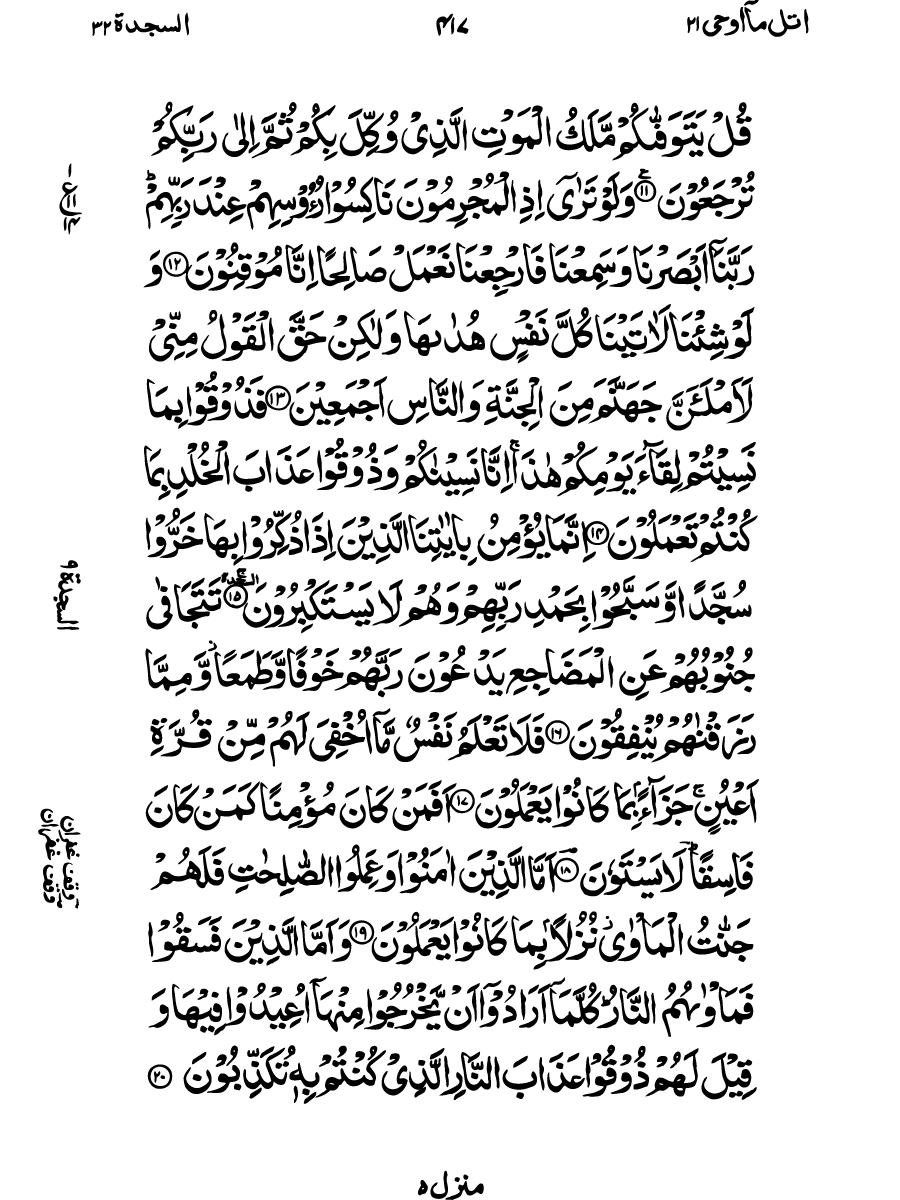 اتل مآ اوحی ۲۱
۴۱۷
السجدة ۳۲
قُلْ يَتَوَفّٰىكُمْ مَّلَكُ الْمَوْتِ الَّذِىْ وُكِّلَ بِكُمْ ثُمَّ اِلٰى رَبِّكُمْ
تُرْجَعُوْنَ ﴿۱۱﴾ۧ وَلَوْ تَرٰٓى اِذِ الْمُجْرِمُوْنَ نَاكِسُوْا رُءُوْسِهِمْ عِنْدَ رَبِّهِمْؕ
رَبَّنَاۤ اَبْصَرْنَا وَسَمِعْنَا فَارْجِعْنَا نَعْمَلْ صَالِحًا اِنَّا مُوْقِنُوْنَ ﴿۱۲﴾ وَ
لَوْ شِئْنَا لَاٰتَيْنَا كُلَّ نَفْسٍ هُدٰىهَا وَلٰكِنْ حَقَّ الْقَوْلُ مِنِّىْ
لَاَمْلَـَٔنَّ جَهَنَّمَ مِنَ الْجِنَّةِ وَالنَّاسِ اَجْمَعِيْنَ ﴿۱۳﴾ فَذُوْقُوْا بِمَا
نَسِيْتُمْ لِقَآءَ يَوْمِكُمْ هٰذَاۚ اِنَّا نَسِيْنٰكُمْ وَذُوْقُوْا عَذَابَ الْخُلْدِ بِمَا
كُنْتُمْ تَعْمَلُوْنَ ﴿۱۴﴾ اِنَّمَا يُؤْمِنُ بِاٰيٰتِنَا الَّذِيْنَ اِذَا ذُكِّرُوْا بِهَا خَرُّوْا
سُجَّدًا وَّسَبَّحُوْا بِحَمْدِ رَبِّهِمْ وَهُمْ لَا يَسْتَكْبِرُوْنَ ﴿۱۵﴾ تَتَجَافٰى
جُنُوْبُهُمْ عَنِ الْمَضَاجِعِ يَدْعُوْنَ رَبَّهُمْ خَوْفًا وَّطَمَعًا وَّمِمَّا
رَزَقْنٰهُمْ يُنْفِقُوْنَ ﴿۱۶﴾ فَلَا تَعْلَمُ نَفْسٌ مَّاۤ اُخْفِىَ لَهُمْ مِّنْ قُرَّةِ
اَعْيُنٍۚ جَزَآءًۢ بِمَا كَانُوْا يَعْمَلُوْنَ ﴿۱۷﴾ اَفَمَنْ كَانَ مُؤْمِنًا كَمَنْ كَانَ
فَاسِقًاؔؕ لَا يَسْتَوٗنَ ﴿۱۸﴾ اَمَّا الَّذِيْنَ اٰمَنُوْا وَعَمِلُوا الصّٰلِحٰتِ فَلَهُمْ
جَنّٰتُ الْمَاْوٰى نُزُلًاۢ بِمَا كَانُوْا يَعْمَلُوْنَ ﴿۱۹﴾ وَاَمَّا الَّذِيْنَ فَسَقُوْا
فَمَاْوٰىهُمُ النَّارُؕ كُلَّمَاۤ اَرَادُوْۤا اَنْ يَّخْرُجُوْا مِنْهَاۤ اُعِيْدُوْا فِيْهَا وَ
قِيْلَ لَهُمْ ذُوْقُوْا عَذَابَ النَّارِ الَّذِىْ كُنْتُمْ بِهٖ تُكَذِّبُوْنَ ﴿۲۰﴾
السجدة ۹
وقف غفران
وقف غفران
منزل ۵